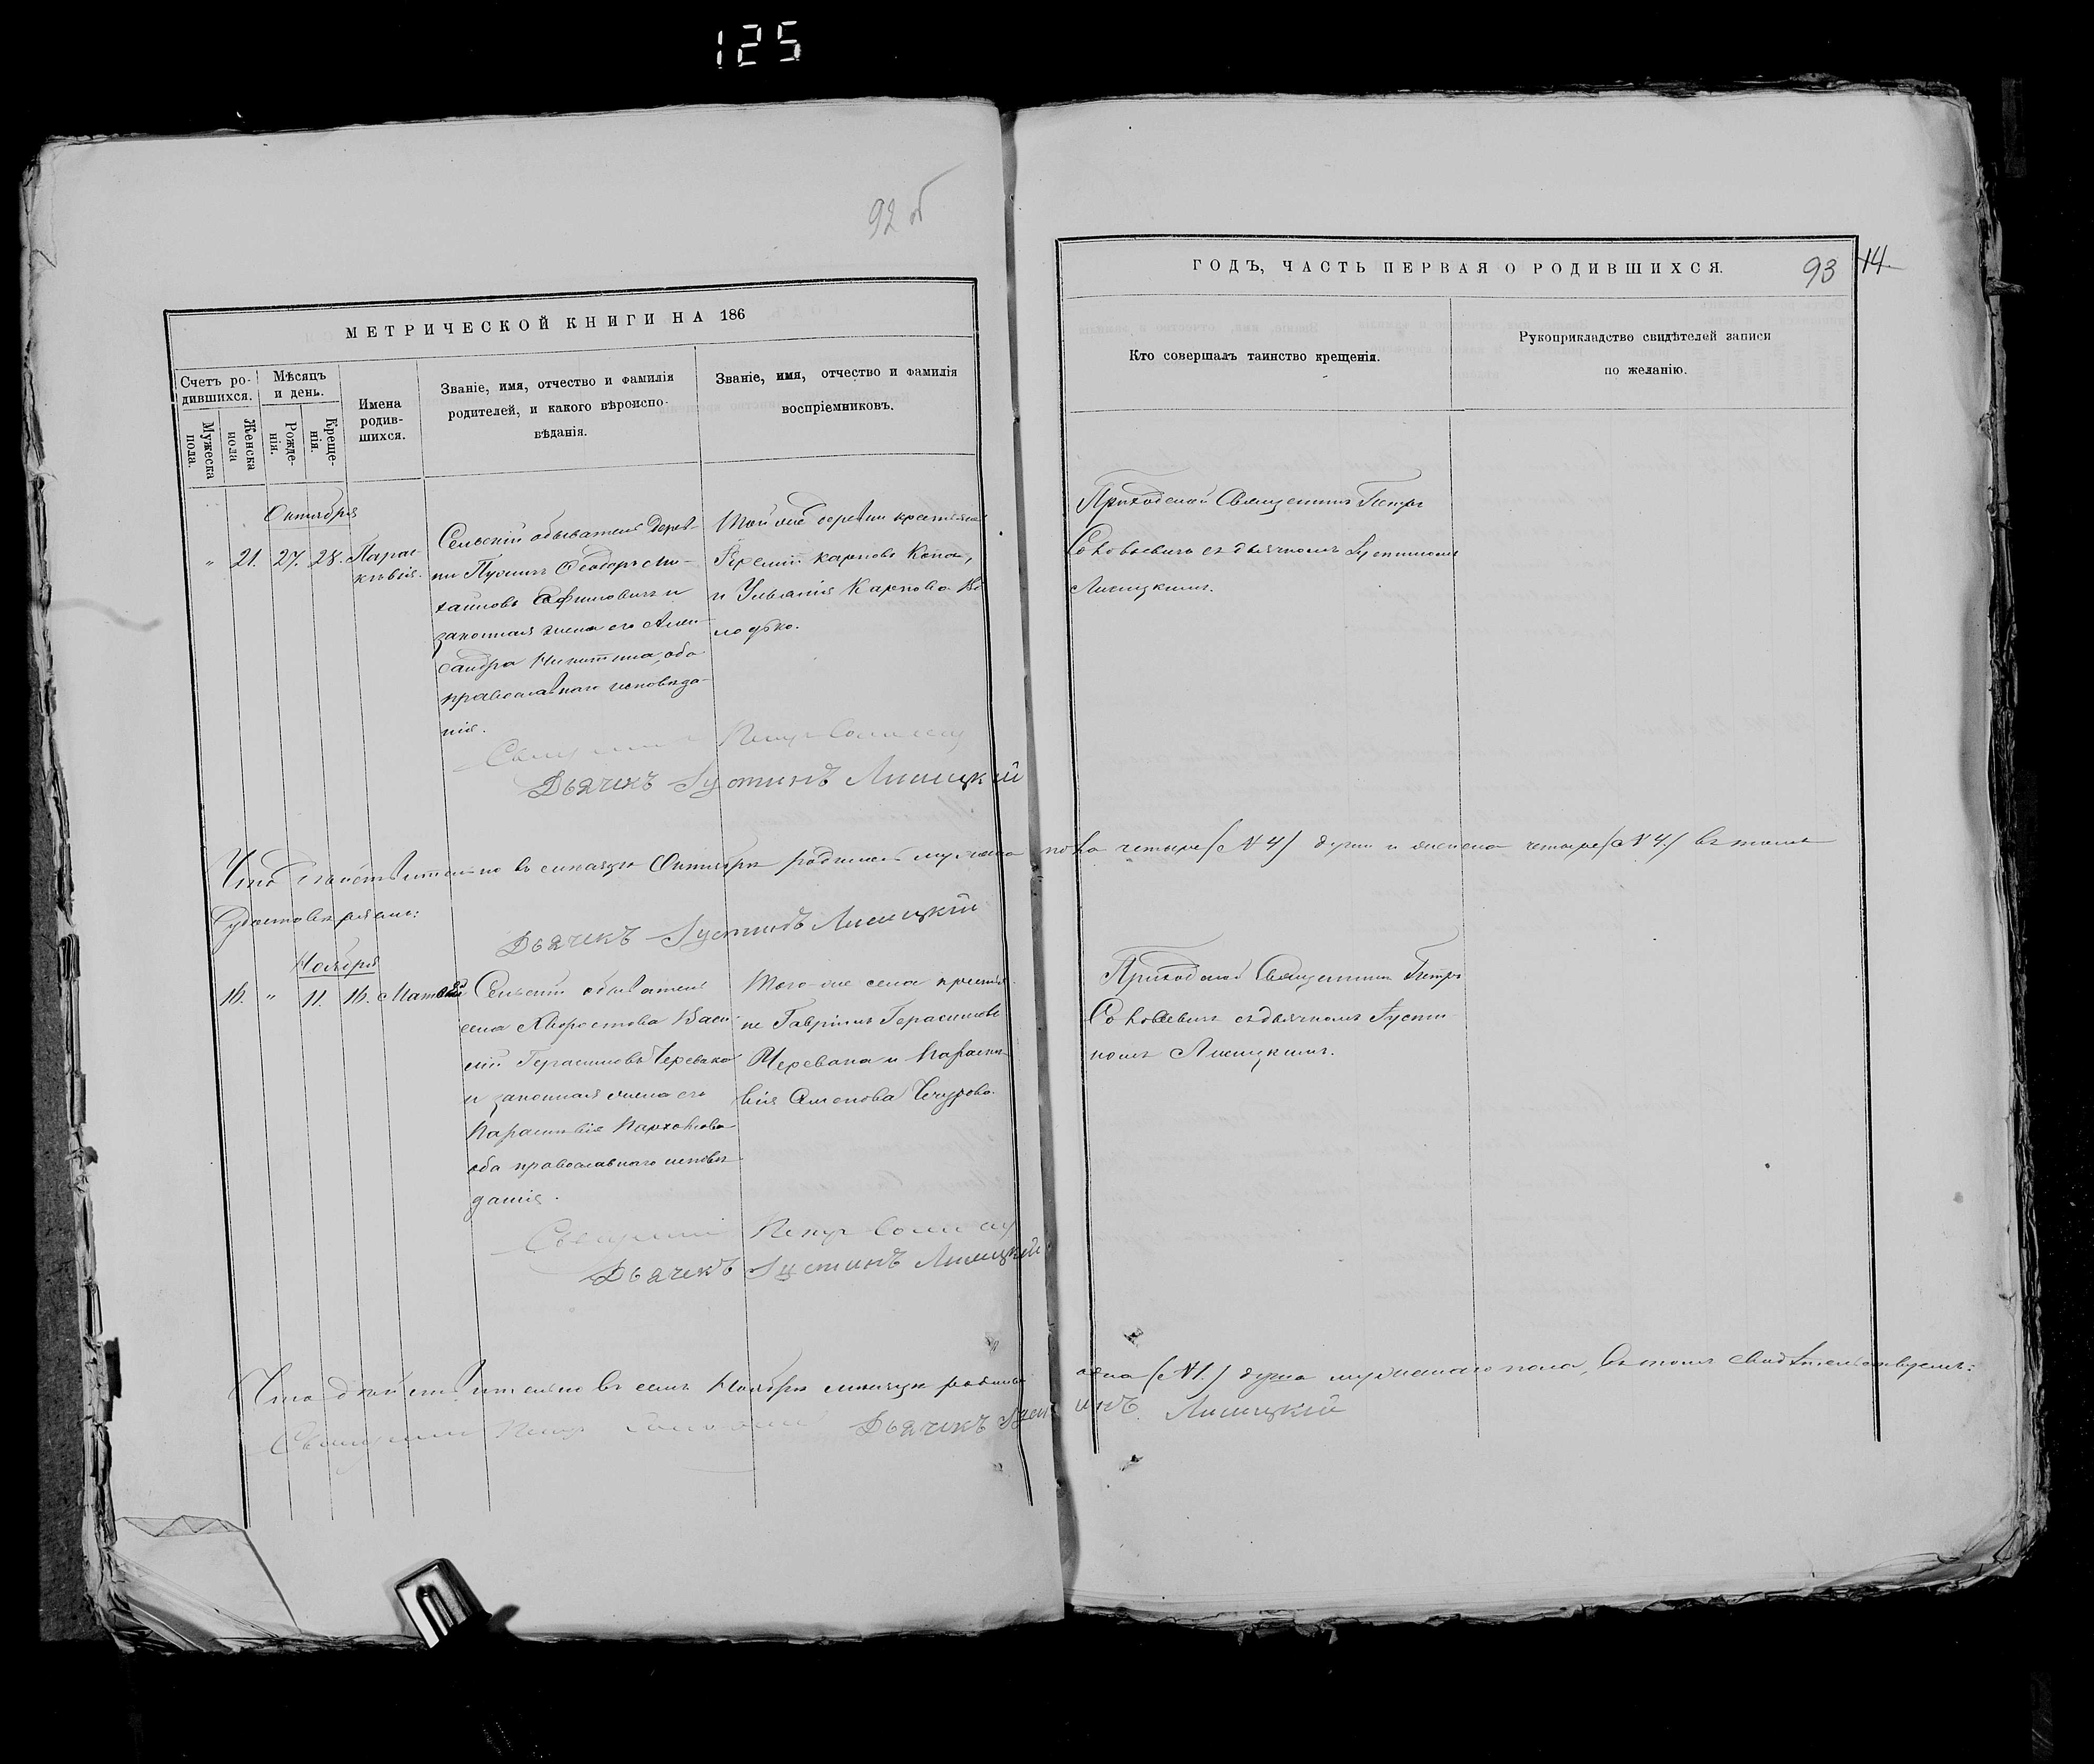 125
92 об
МЕТРИЧЕСКОЙ КНИГИ НА 186
Счетъ ро-
дившихся.
Мужеска
пола.
Женска
пола
Мѣсяцъ
и день.
Рожде-
нія.
Креще-
нія.
Имена
родив-
шихся.
Званіе, имя, отчество и фамилія
родителей, и какого вѣроиспо-
вѣданія.
Званіе, имя, отчество и фамилія
воспріемниковъ.
Октября
" 21. 27. 28. Парас-
кевія.
Сельскій обыватель дерев-
ни Ѳеодоръ Ми-
хаиловъ и
законная жена его Алек-
сандра Никитина, оба
православнаго исповѣда-
нія.
Той же деревни крестьяне
Карповъ
и Ульянія Карпова
Петръ
Дьячекъ Іустинъ Лисицкій
Что дѣйствительно въ мѣсяцѣ Октябрѣ родилось мужеска пола четыре (№ 4) души и женска четыре (№ 4) въ томъ
удостовѣряемъ:
Дьячекъ Іустинъ Лисицкій
Ноября
16. " 11. 16. Матвѣй
Сельскій обыватель
села Хворостова Васи-
лій Герасимовъ Черевако
и законная жена его
Параскевія
оба православнаго исповѣ-
данія.
Того-же села крестья-
не Гавріилъ Герасимовъ
и Параске-
вія Семенова
Петръ
Дьячекъ Іустинъ Лисицкій
Что дѣйствительно въ семъ Ноябрѣ мѣсяцѣ родилась одна (№ 1.) душа мужескаго пола, въ томъ свидѣтельствуемъ:
Петръ Дьячекъ Іустинъ Лисицкій
ГОДЪ, ЧАСТЬ ПЕРВАЯ О РОДИВШИХСЯ.
93 14
Кто совершалъ таинство крещенія.
Рукоприкладство свидѣтелей записи
по желанію.
Приходской Священникъ Петръ
съ дьячкомъ Іустиномъ
Лисицкимъ.
Приходской Священникъ Петръ
съ дьячкомъ Іусти-
номъ Лисицкимъ.